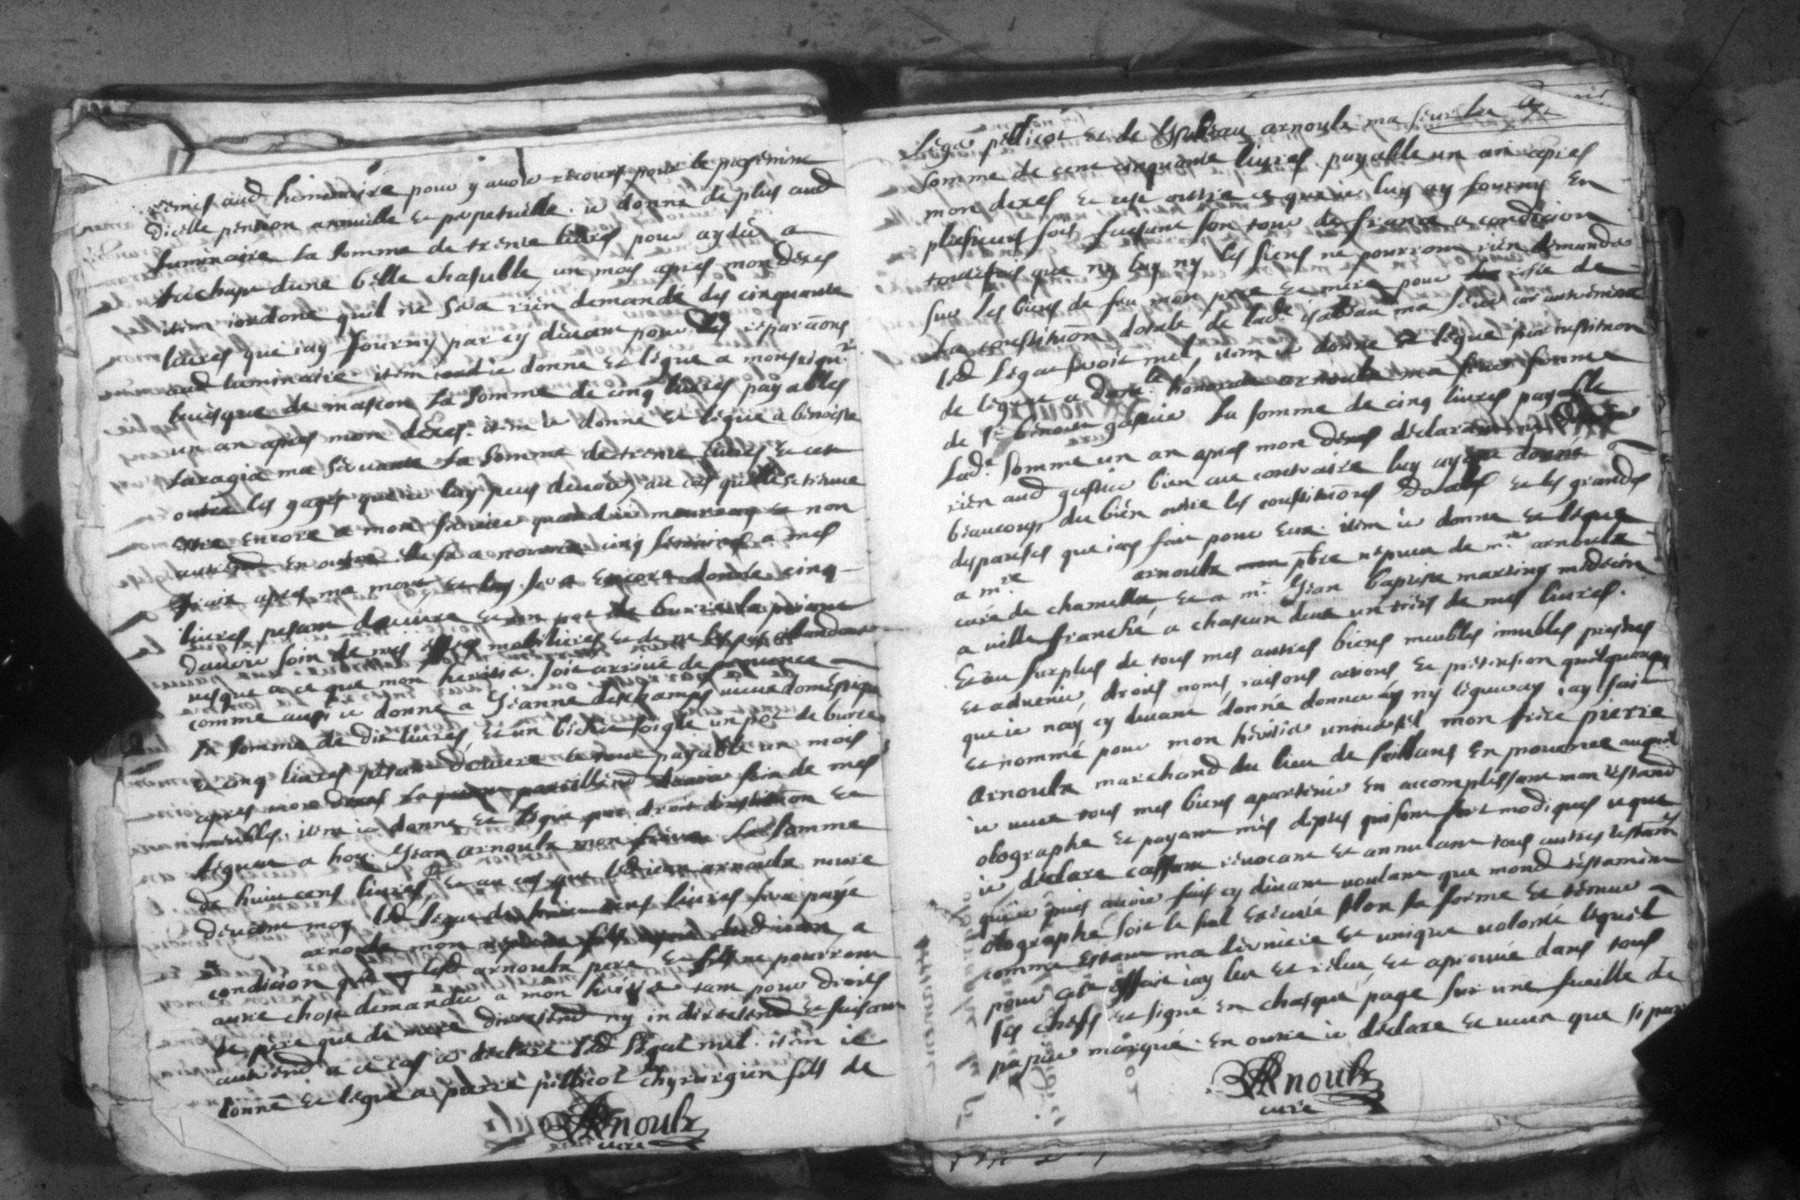 remis aud luminaire pour y avoir recours pour le payemine
dicelle pension annuelle et perpetuelle. ie donne de plus aud
luminaire la somme de trente livres pour ayder a
lachapt dune belle chasuble un mois apres mon deces
item iordone quil ne sera rien demandé des cinquante
livres que iay fourny par cy devant pour les reparaons
aud luminaire item ie donne et legue a monseigr
levesque de mascon la somme de cinq livres payables
un an apres mon deces. item ie donne et legue a benoiste
ma servante la somme de trente livres et cet
outre les gages que ie luy peus devoir, au cas quelle se trenue
estre encore a mon service quand ie mourray et non
autremt en outre elle sera nourrie cinq semaines a mes
fraix apres ma mort et luy sera encore donné cinq
livres pesant et un pot de burre la priant
davoir soin de mes mobilieres et de ne les abandoner
iusque a ce que mon heritier soit arrivé de provence
comme aussi ie donne a Jeanne deschamps vieue domestique
la somme de dix livres, et un bichet soigle un pot de burre
et cinq livres pesant le tout payable un mois
apres mon deces soin de mes
meubles. item ie donne et legue par droit dinstitution et
legue a hor. Jean arnoulx mon frere la somme
de huit cens livres, et au cas que led iean arnoulx meure
devant moy led legue de huit cens livres sera payé
a arnoulx mon fils dud iean a
condicion que led arnoulx pere et fils ne pourront
autre chose demander a mon heritier tant pour droits
de pere que de mere directemt ny indirectemt et faisant
autremt a ce cas ie declare led legat nul. item ie
donne et legue a pierre pellicot chyrurgien fils de
Arnoulx
curé
Legér pellicot et de ysabeau arnoulx ma seur la
somme de cent cinquante livres payable un an apres
mon deces et cest outre ce que ie luy ay fourny en
plusieurs fois faisant son tour de france a condicion
toutesfois que ny luy ny les siens ne pourront rien demander
sur les biens de feu mon pere et mere pour reste de
la constituon dotale de lade isabeau ma seur car autrement
led legat seroit nul, item ie donne et legue par institution
de legue a dame honorade arnoulx ma seur femme
de sr benoist gastue la somme de cinq livres payable
lade somme un an apres mon deces declarant ne
rien aud gastue bien au contraire luy ayant donné
beaucoup du bien outre les constituons dotales et les grandes
despances que iay fait pour eux. item ie donne et legue
a mre arnoulx mon pbre nepveu de mr arnoulx
curé de chamelle et a mr Jean baptiste martiny medecin
a ville franche a chascun deux un tiers de mes livres.
Et au surplus de tous mes autres biens meubles imubles presens
et advenir droits noms raisons actions et pretension quelquonque
que ie nay cy devant donné donneray ny legueray iay fait
et nommé pour mon heritier universel mon frere pierre
arnoulx marchand du lieu de seillans en provence auquel
ie veux tous mes biens apartenir en accomplissant mon testamt
olographe et payant mes deptes qui sont fort modiques et que
ie declare cassant revocant et annulant tous autres testamts
que ie puis avoir fait cy devant voulant que mond testament
olographe soit le seul executé selon sa forme et teneur
comme estant ma derniere et unique volonté lequel
pour cet effait iay leu et releu et aprouué dans tous
ses chefs et signé en chasque page sur une feuille de
papier marqué. en outre ie declare et veux que si par
Arnoulx
curé